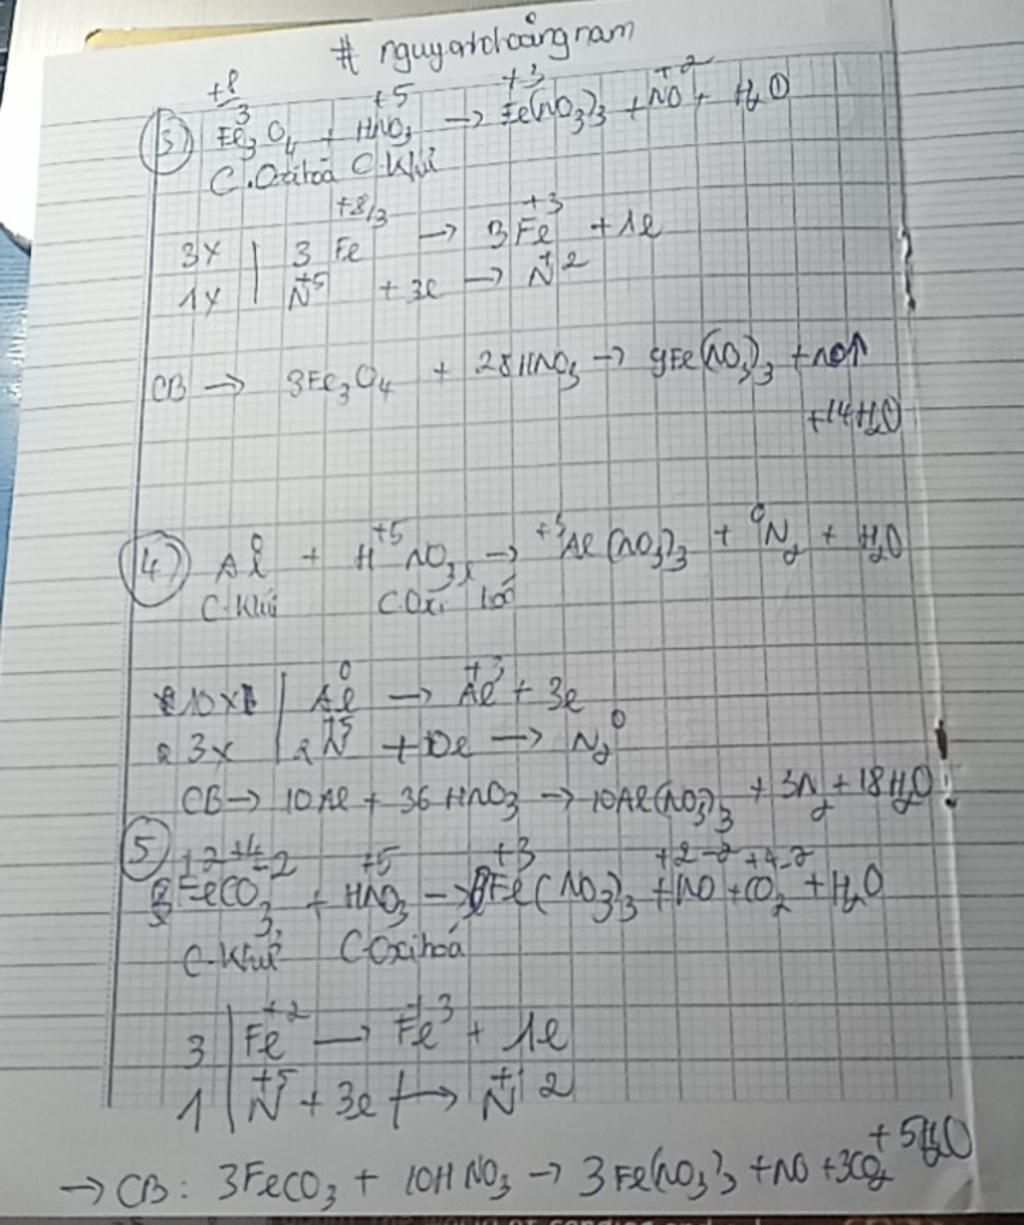 # nguyentchoangnam
+8/3 +5 +3 +2
3) Fe3O4 + HNO3 → Fe(NO3)3 + NO + H2O
C.Oxihoá C.Khử
3x | 3 Fe+8/3 → 3Fe+3 + 1e
1x | N+5 + 3e → N+2
CB → 3Fe3O4 + 28HNO3 → 9Fe(NO3)3 + NO↑
+14H2O
4) Al0 + HN+5O3 → +3Al(NO3)3 + 0N2 + H2O
C.Khử C.Oxi hoá
10x | Al0 → Al+3 + 3e
3x | 2N+5 + 10e → N20
CB → 10Al + 36HNO3 → 10Al(NO3)3 + 3N2 + 18H2O
5) +2+4-2 +5 +3 +2-2 +4-2
FeCO3 + HNO3 → Fe(NO3)3 + NO + CO2 + H2O
C.Khử C.Oxihoá
3 | Fe+2 → Fe+3 + 1e
1 | N+5 + 3e → N+2
→ CB: 3FeCO3 + 10HNO3 → 3Fe(NO3)3 + NO + 3CO2 + 5H2O